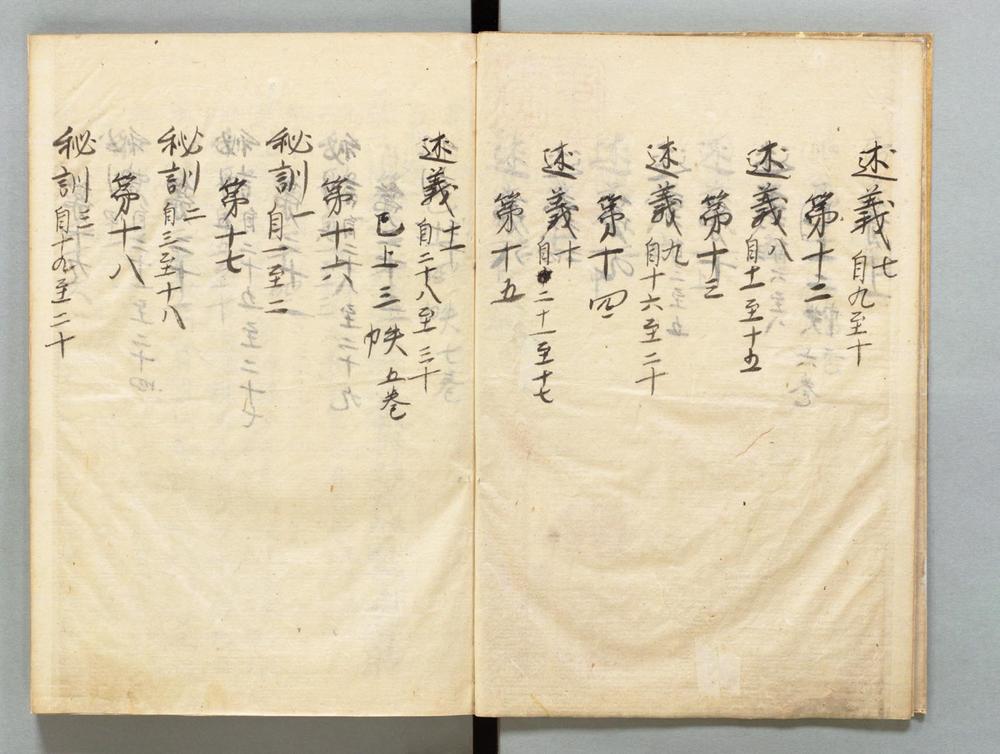 述義七自九至十
第十二
述義八自十一至十五
第十三
述義九自十六至二十
第十四
述義十自二十一至十七
第十五
述義十一自二十八至三十
已上三帙五巻
第十六
秘訓一自一至二
第十七
秘訓二自三至十八
第十八
秘訓三自十九至二十